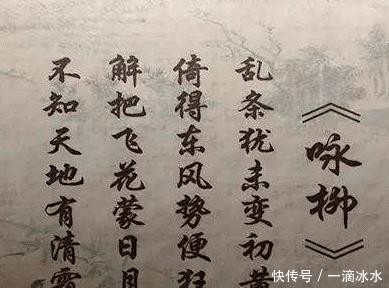 《咏柳》
乱条犹未变初黄
倚得东风势便狂
解把飞花蒙日月
不知天地有清霜
快传号/一滴冰水